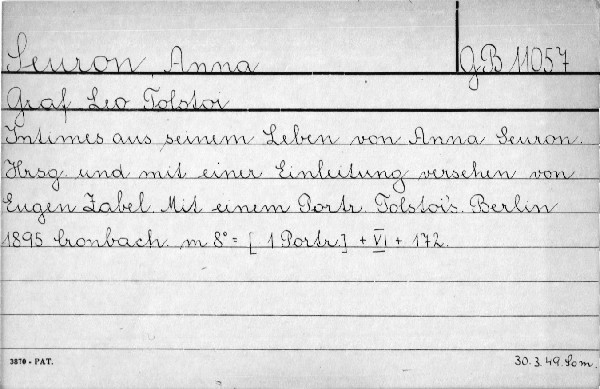 Seuron, Anna
gB 11057
Graf Leo Tolstoi
Intimes aus seinem Leben von Anna Seuron.
Hrsg. und mit einer Einleitung versehen von
Eugen Zabel. Mit einem Portr. Tolstoi's. Berlin
1895 Cronbach. m 8° = [ 1 Portr.] + VI + 172.
3870 - PAT.
30.3.49. Som.